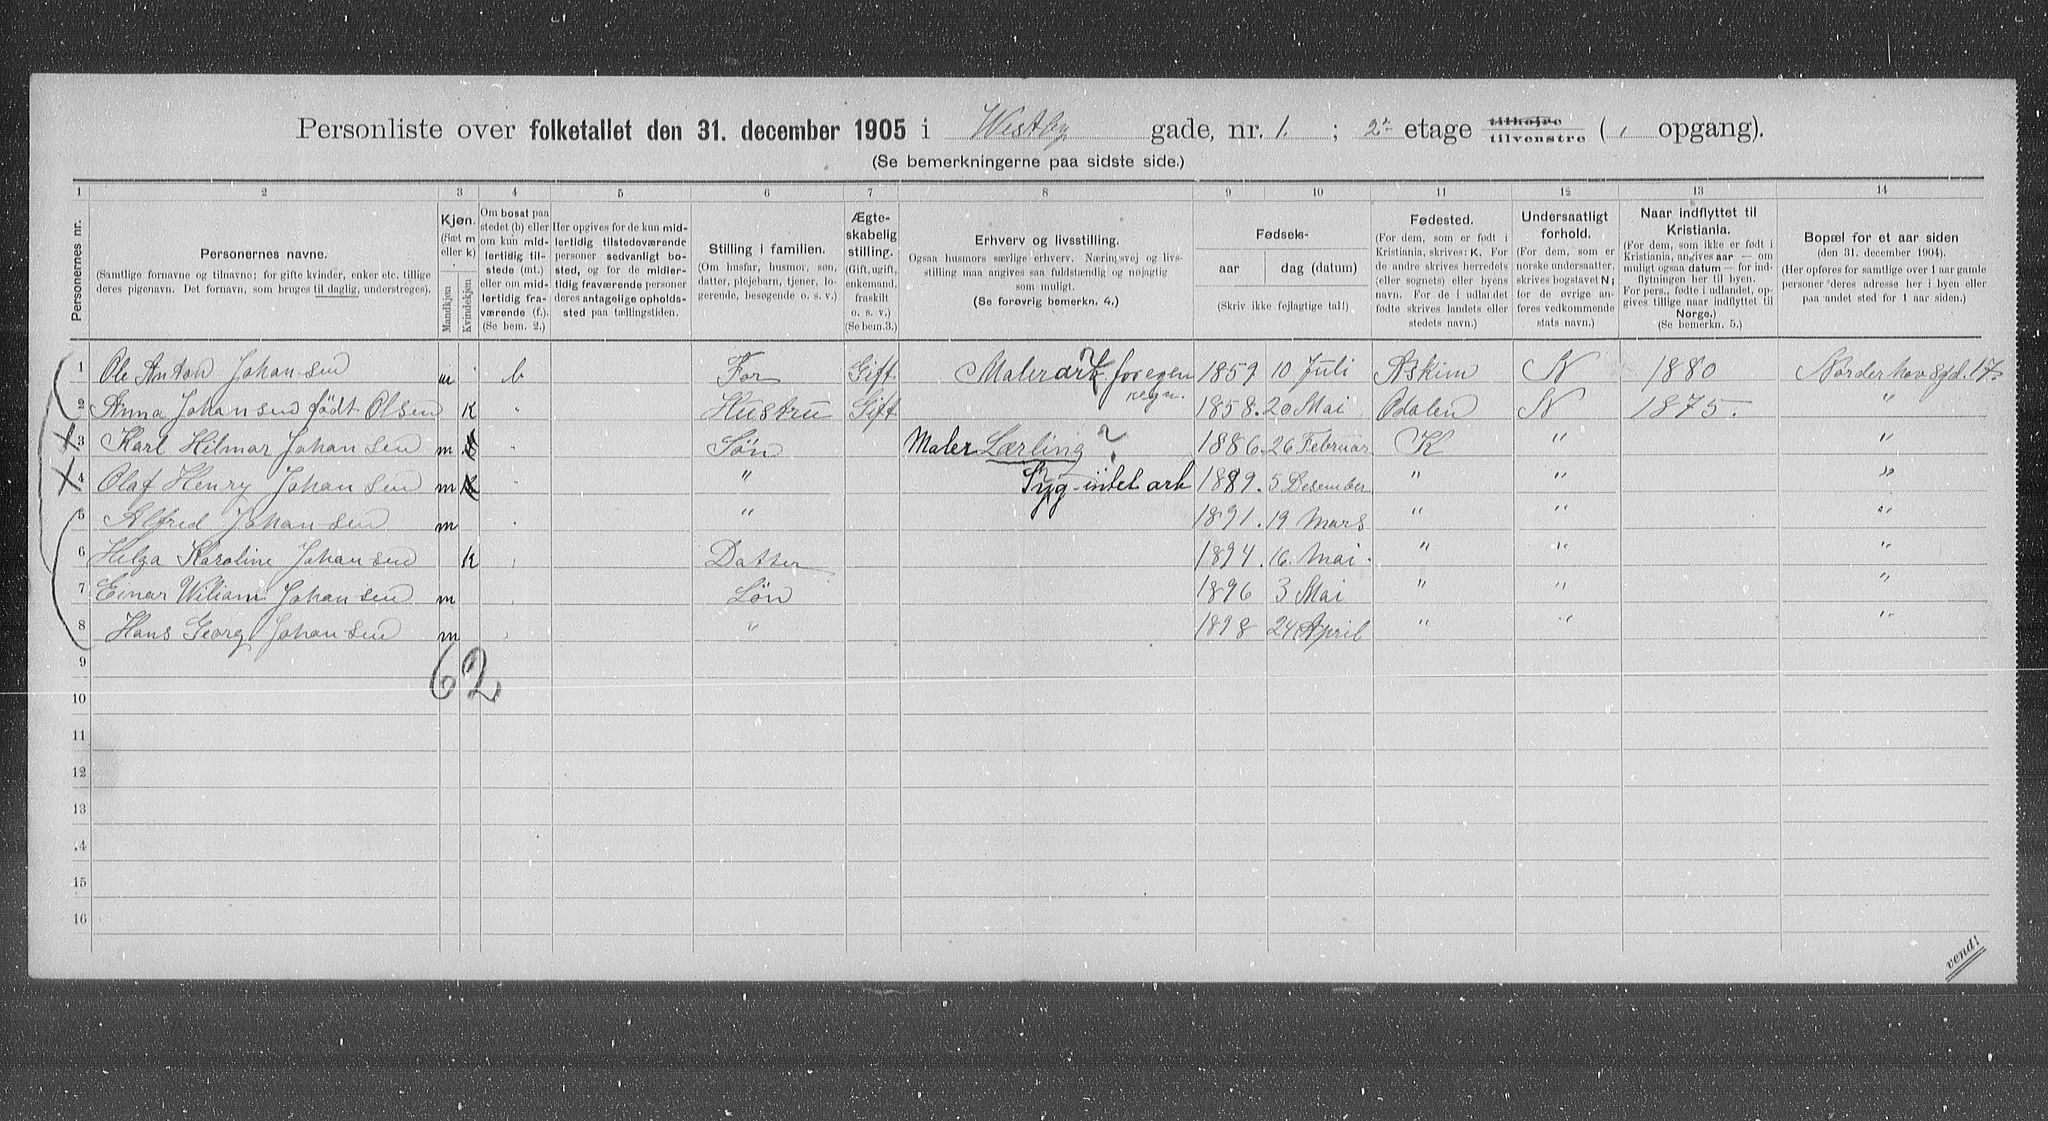 Personliste over folketallet den 31. december 1905 i Westby gade, nr. 1. ; 2 etage tilhøjre tilvenstre ( , opgang).
(Se bemerkningerne paa sidste side.)
1 2 3 4 5 6 7 8 9 10 11 12 13 14
Personernes nr.
Personernes navne.
(Samtlige fornavne og tilnavne; for gifte kvinder, enker etc. tillige deres pigenavn. Det fornavn, som bruges til daglig, understreges).
Kjøn.
(Sæt m eller k)
Mandkjøn
Kvindekjøn
Om bosat paa stedet (b) eller om kun midlertidig tilstede (mt.) eller om midlertidig fraværende (f.). (Se bem. 2.)
Her opgives for de kun midlertidig tilstedeværende personer sedvanligt bosted, og for de midlertidig fraværende personer deres antagelige opholdssted paa tællingstiden.
Stilling i familien.
(Om husfar, husmor, søn, datter, plejebarn, tjener, logerende, besøgende o. s. v.)
Ægteskabelig stilling.
(Gift, ugift, enkemand, fraskilt o. s. v.) (Se bem. 3.)
Erhverv og livsstilling.
Ogsaa husmors særlige erhverv. Næringsvej og livsstilling maa angives saa fuldstændig og nøjagtig som muligt.
(Se forøvrig bemerkn. 4.)
Fødsels-
aar dag (datum)
(Skriv ikke fejlagtige tal!)
Fødested.
(For dem, som er født i Kristiania, skrives: K. For de andre skrives herredets (eller sognets) eller byens navn. For de i udlandet fødte skrives landets eller stedets navn.)
Undersaatligt forhold.
(For dem, som er norske undersaatter, skrives bogstavet N; for de øvrige anføres vedkommende stats navn.)
Naar indflyttet til Kristiania.
(For dem, som ikke er født i Kristiania, angives aar — om muligt ogsaa datum — for indflytningen her til byen. For pers., fødte i udlandet, opgives tillige naar indflyttet til Norge.)
(Se bemerkn. 5.)
Bopæl for et aar siden
(den 31. december 1904).
(Her opføres for samtlige over 1 aar gamle personer deres adresse her i byen eller paa andet sted for 1 aar siden.)
1 Ole Anton Johansen m b Far Gift Maler ark for egen regn. ? 1859 10 Juli Askim N 1880 Norderhovsgd. 17.
2 Anna Johansen født Olsen K " Hustru Gift 1858. 20 Mai Odalen N 1875. "
X 3 Karl Hilmar Johansen m " Søn Maler Lærling ? 1886. 26 Februar K " "
X 4 Olaf Henry Johansen m " " Syg-intet ark 1889. 5 Desember " " "
5 Alfred Johansen m " " 1891. 19 Mars " " "
6 Helga Karoline Johansen K " Datter 1894. 16. Mai. " " "
7 Einar Wiliam Johansen m " Søn 1896 3 Mai " " "
8 Hans Georg Johansen m " " 1898 24 April " " "
62
9
10
11
12
13
14
15
16
vend!